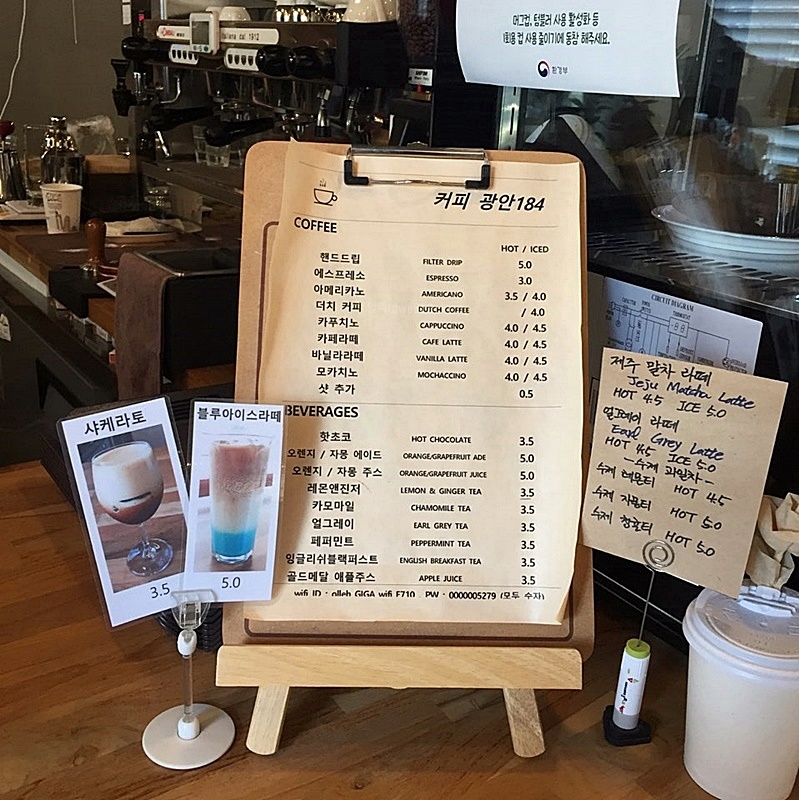 머그컵, 텀블러 사용 활성화 등
1회용 컵 사용 줄이기에 동참 해주세요.
환경부
커피 광안184
COFFEE
HOT / ICED
핸드드립 FILTER DRIP 5.0
에스프레소 ESPRESSO 3.0
아메리카노 AMERICANO 3.5 / 4.0
더치 커피 DUTCH COFFEE / 4.0
카푸치노 CAPPUCCINO 4.0 / 4.5
카페라떼 CAFE LATTE 4.0 / 4.5
바닐라라떼 VANILLA LATTE 4.0 / 4.5
모카치노 MOCHACCINO 4.0 / 4.5
샷 추가 0.5
BEVERAGES
핫초코 HOT CHOCOLATE 3.5
오렌지 / 자몽 에이드 ORANGE/GRAPEFRUIT ADE 5.0
오렌지 / 자몽 주스 ORANGE/GRAPEFRUIT JUICE 5.0
레몬앤진저 LEMON & GINGER TEA 3.5
카모마일 CHAMOMILE TEA 3.5
얼그레이 EARL GREY TEA 3.5
페퍼민트 PEPPERMINT TEA 3.5
잉글리쉬블랙퍼스트 ENGLISH BREAKFAST TEA 3.5
골드메달 애플주스 APPLE JUICE 3.5
wifi ID : olleh GIGA wifi F710 PW : 0000005279 (모두 숫자)
샤케라토
3.5
블루아이스라떼
5.0
CIRCUIT DIAGRAM
제주 말차 라떼
Jeju Matcha Latte
HOT 4.5 ICE 5.0
얼그레이 라떼
Earl Grey Latte
HOT 4.5 ICE 5.0
-수제 과일차-
수제 레몬티 HOT 4.5
수제 자몽티 HOT 5.0
수제 청귤티 HOT 5.0